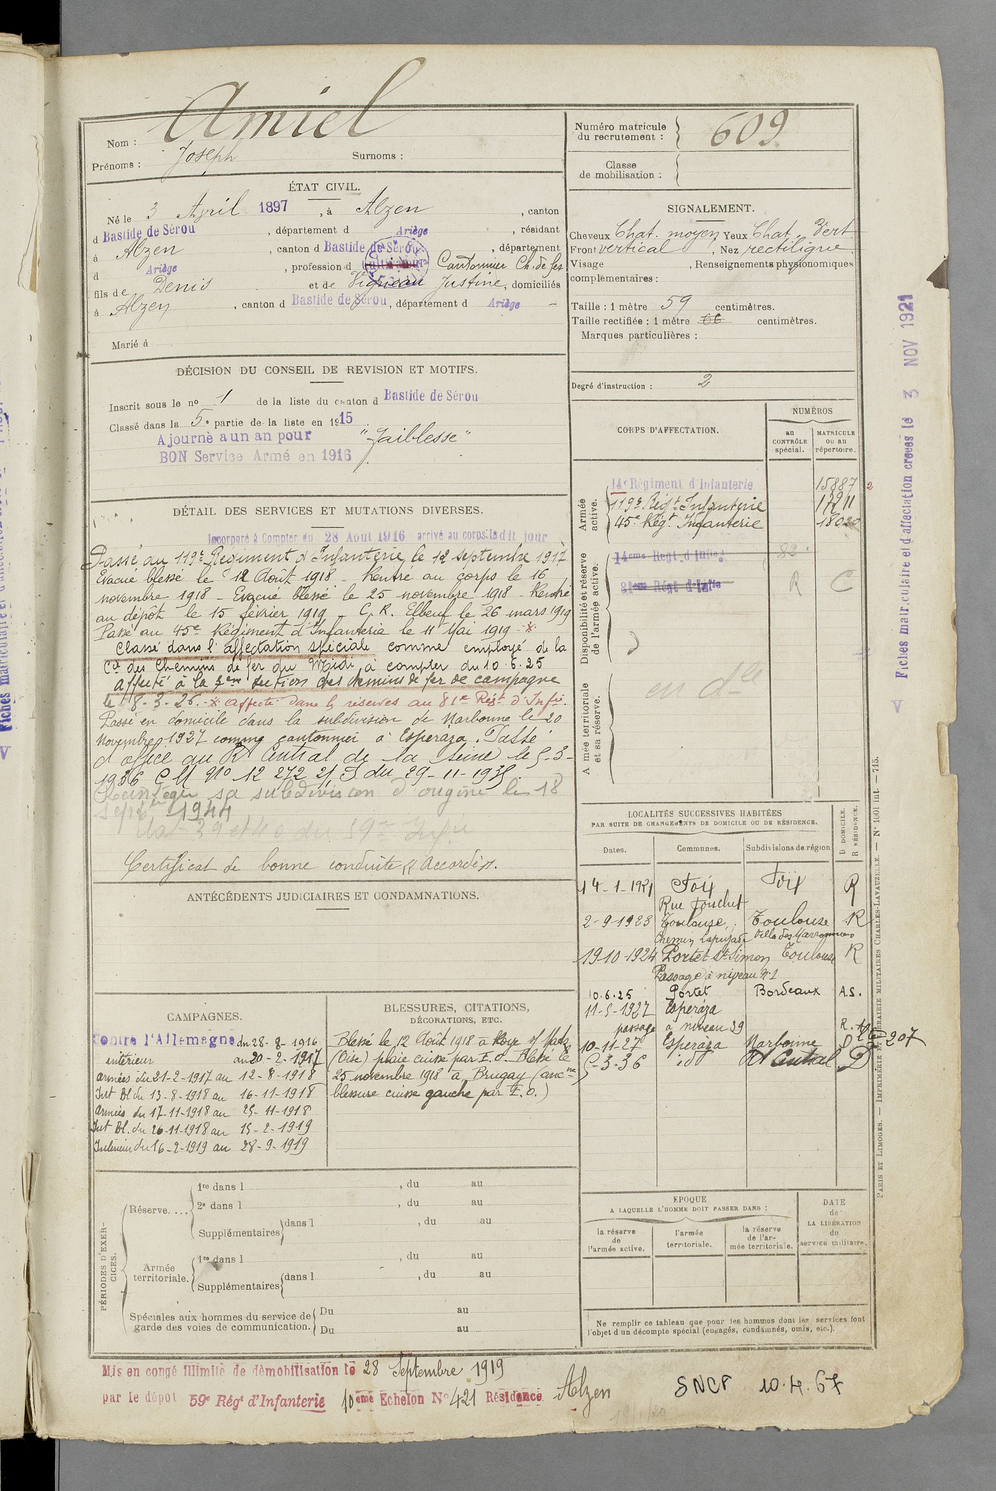 Nom : Amiel
Prénoms : Joseph Surnoms :
Numéro matricule du recrutement : 609
Classe de mobilisation :
ÉTAT CIVIL.
Né le 3 Avril 1897, à Alzen, canton
d Bastide de Sérou, département d Ariège, résidant
à Alzen, canton d Bastide de Sérou, département
d Ariège, profession d Cantonnier Ch. de fer
fils de Denis et de Justine, domiciliés
à Alzen, canton d Bastide de Sérou, département d Ariège
Marié à
SIGNALEMENT.
Cheveux Chat. moyen Yeux Chat. Vert
Front vertical, Nez rectiligne
Visage , Renseignements physionomiques
complémentaires :
Taille : 1 mètre 59 centimètres.
Taille rectifiée : 1 mètre 66 centimètres.
Marques particulières :
Degré d'instruction : 2
DÉCISION DU CONSEIL DE REVISION ET MOTIFS.
Inscrit sous le no 1 de la liste du canton d Bastide de Sérou
Classé dans la 5e partie de la liste en 1915
Ajourné a un an pour "Faiblesse"
BON Service Armé en 1916
DÉTAIL DES SERVICES ET MUTATIONS DIVERSES.
Incorporé à Compter du 28 Août 1916 arrivé au corps ledit jour
Passé au 119e Régiment d'Infanterie le 12 septembre 1917
Evacué blessé le 12 Août 1918 - Rentré au corps le 16
novembre 1918 - Evacué blessé le 25 novembre 1918 - Rentré
au dépôt le 15 février 1919 - C.R. Elbeuf le 26 mars 1919
Passé au 45e Régiment d'Infanterie le 11 Mai 1919 - x
Classé dans l'affectation spéciale comme employé de la
Cie des Chemins de fer du Midi, à compter du 10.6.25
Affecté à la 3eme section des chemins de fer de campagne
le 18-3-26. x Affecté dans la réserves au 81e Régt d'Infie.
Passé en domicile dans la subdivision de Narbonne le 20
Novembre 1927 comme cantonnier à Esperaza. Passé
d'office au Rt Central de la Seine le 5-3-
1936 C M No 12 272 2/S du 29-11-1935.
Réintégré sa subdivision d'origine le 18
septbre 1944
Certificat de bonne conduite "Accordé".
ANTÉCÉDENTS JUDICIAIRES ET CONDAMNATIONS.
CORPS D'AFFECTATION.
NUMÉROS
au CONTRÔLE spécial.
MATRICULE ou au répertoire.
Armée active.
14e Régiment d'Infanterie 15887
119e Régt Infanterie 17911
45e Régt Infanterie
Disponibilité et réserve de l'armée active.
14eme Regt d'Infie 82
81eme Régt d'Infie R C
Armée territoriale et sa réserve.
LOCALITÉS SUCCESSIVES HABITÉES
PAR SUITE DE CHANGEMENTS DE DOMICILE OU DE RÉSIDENCE.
Dates. Communes. Subdivisions de région D DOMICILE. R RÉSIDENCE.
14-1-1921 Foix Foix R
Rue
2-9-1923 Toulouse Toulouse R
Chemin
19-10-1924 Portet St Simon Toulouse R
Passage à niveau
10.6.25 Portet Bordeaux A.S.
11-5-1927 Esperaza
passage à niveau 29
10-11-27 Esperaza Narbonne D
5-3-36 idt Rt Central D
207
CAMPAGNES.
Contre l'Allemagne du 28-8-1916
intérieur au 20-2-1917
armées du 21-2-1917 au 12-8-1918
Int Bl. du 13-8-1918 au 16-11-1918
armées du 17-11-1918 au 25-11-1918
Int Bl. du 26-11-1918 au 15-2-1919
Intérieur du 16-2-1919 au 28-9-1919
BLESSURES, CITATIONS,
DÉCORATIONS, ETC.
Blessé le 12 Août 1918 à Roye s/ Matz
(Oise) plaie cuisse par E.O. Blessé le
25 novembre 1918 à Brugay
blessure cuisse gauche par E.O.)
PÉRIODES D'EXERCICES.
Réserve....
1re dans l , du au
2e dans l , du au
Supplémentaires dans l , du au
Armée territoriale.
1re dans l , du au
Supplémentaires dans l , du au
Spéciales aux hommes du service de garde des voies de communication.
Du au
Du au
EPOQUE
A LAQUELLE L'HOMME DOIT PASSER DANS :
la réserve de l'armée active.
l'armée territoriale.
la réserve de l'armée territoriale.
DATE de LA LIBÉRATION du service militaire.
Ne remplir ce tableau que pour les hommes dont les services font
l'objet d'un décompte spécial (engagés, condamnés, omis, etc.).
Mis en congé illimité de démobilisation le 28 Septembre 1919
par le dépôt 59e Régt d'Infanterie 10eme Echelon No 421 Résidence Alzen
SNCF 10.4.67
Fiches matriculaire et d'affectation créées le 3 NOV 1921
PARIS ET LIMOGES. — IMPRIMERIE ET LIBRAIRIE MILITAIRES CHARLES-LAVAUZELLE. — No 1001 int. — 715.